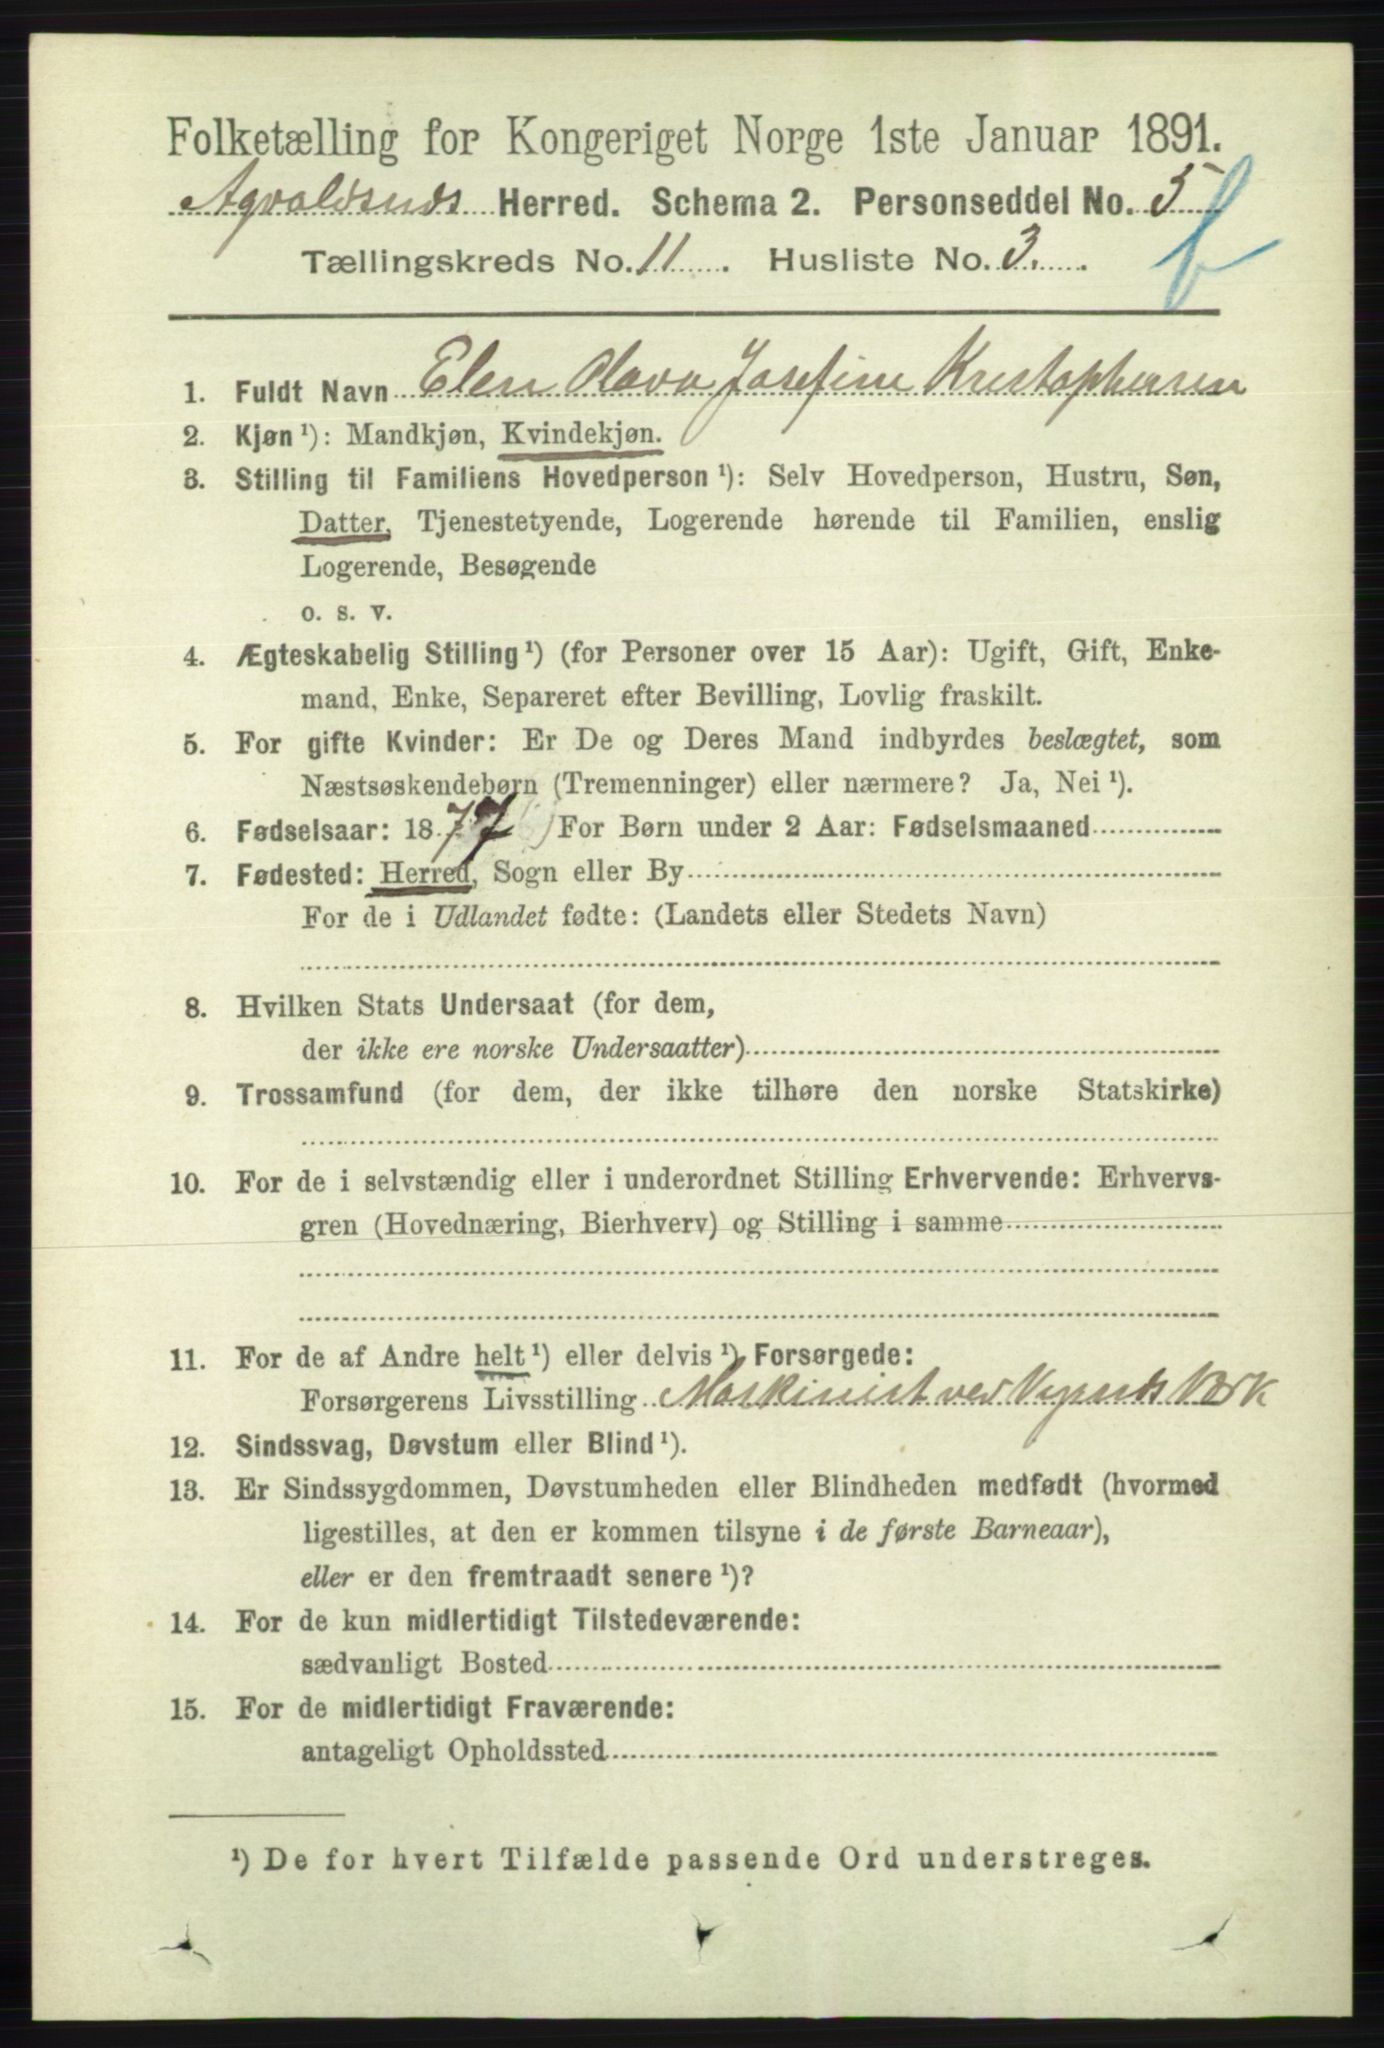 Folketælling for Kongeriget Norge 1ste Januar 1891.
Agvaldsnds Herred. Schema 2. Personseddel No. 5
Tællingskreds No. 11. Husliste No. 3.
b
1. Fuldt Navn Elen Olava Josefine Kristophersen
2. Kjøn ¹): Mandkjøn, Kvindekjøn.
3. Stilling til Familiens Hovedperson ¹): Selv Hovedperson, Hustru, Søn,
Datter, Tjenestetyende, Logerende hørende til Familien, enslig
Logerende, Besøgende
o. s. v.
4. Ægteskabelig Stilling ¹) (for Personer over 15 Aar): Ugift, Gift, Enke-
mand, Enke, Separeret efter Bevilling, Lovlig fraskilt.
5. For gifte Kvinder: Er De og Deres Mand indbyrdes beslægtet, som
Næstsøskendebørn (Tremenninger) eller nærmere? Ja, Nei ¹).
6. Fødselsaar: 1877 For Børn under 2 Aar: Fødselsmaaned
7. Fødested: Herred, Sogn eller By
For de i Udlandet fødte: (Landets eller Stedets Navn)
8. Hvilken Stats Undersaat (for dem,
der ikke ere norske Undersaatter)
9. Trossamfund (for dem, der ikke tilhøre den norske Statskirke)
10. For de i selvstændig eller i underordnet Stilling Erhvervende: Erhvervs-
gren (Hovednæring, Bierhverv) og Stilling i samme
11. For de af Andre helt ¹) eller delvis ¹) Forsørgede:
Forsørgerens Livsstilling Maskinist ved Vigsnds Værk
12. Sindssvag, Døvstum eller Blind ¹).
13. Er Sindssygdommen, Døvstumheden eller Blindheden medfødt (hvormed
ligestilles, at den er kommen tilsyne i de første Barneaar),
eller er den fremtraadt senere ¹)?
14. For de kun midlertidigt Tilstedeværende:
sædvanligt Bosted
15. For de midlertidigt Fraværende:
antageligt Opholdssted
¹) De for hvert Tilfælde passende Ord understreges.